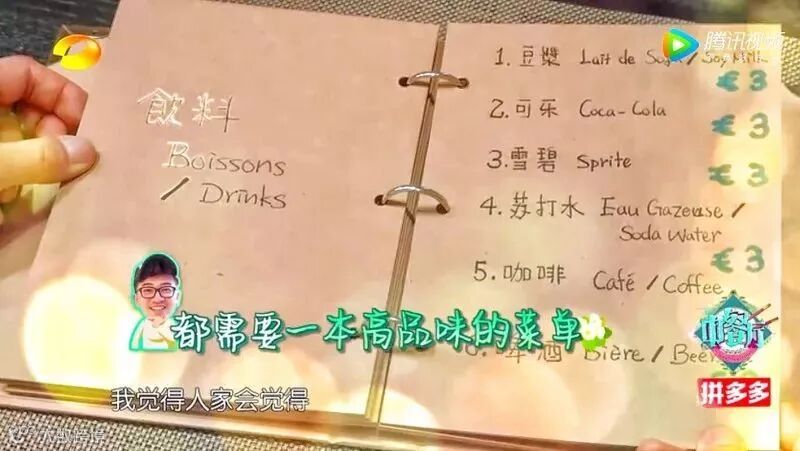 腾讯视频
飲料
Boissons
/ Drinks
1. 豆漿 Lait de Soja / Soy Milk
€3
2. 可乐 Coca-Cola
€3
3. 雪碧 Sprite
€3
4. 苏打水 Eau Gazeuse /
Soda Water
€3
5. 咖啡 Café / Coffee
6. 啤酒 Bière / Beer
都需要一本高品味的菜单
中餐厅
拼多多
我觉得人家会觉得
大数跨境